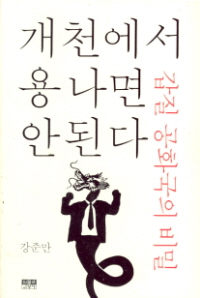 개천에서
용나면
안된다
갑질 공화국의 비밀
강준만